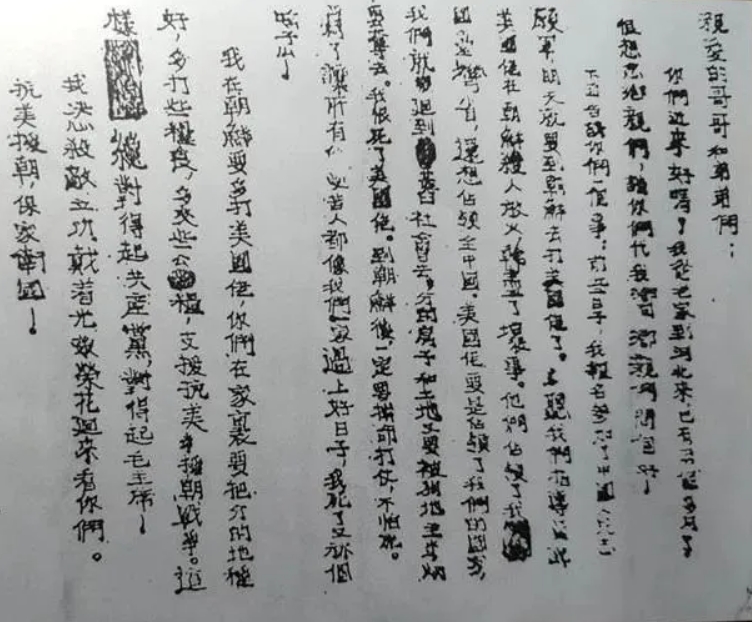 親愛的哥哥和弟弟們：
你們近來好嗎？我從老家到河北來已有個多月了
很想念鄉親們，請你們代我向鄉親們問個好！
下面告訴你們一個事：前些日子，我報名參加了中國人民志
願軍，明天就要到朝鮮去打美國佬了。聽我們指導員
美國佬在朝鮮殺人放火，幹盡了壞事。他們佔領了我
國台灣省，還想佔領全中國。美國佬要是佔領了我們的國家，
我們就要迴到舊社會去，分的房子和土地又要被地主
要奪去。我恨死了美國佬。到朝鮮後一定要拼命打仗，不怕死。
為了讓所有受苦人都像我們一家過上好日子，我死了又那個
啥子么！
我在朝鮮要多打美國佬，你們在家裏要把分的地種
好，多打些糧食，多交些公糧，支援抗美援朝戰爭。這
樣 對得起共產黨，對得起毛主席！
我決心殺敵立功，戴着光榮花迴來看你們。
抗美援朝，保家衛國！